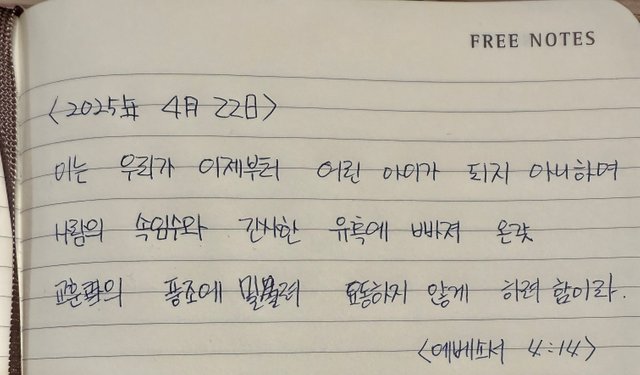 FREE NOTES
<2025年 4月 22日>
이는 우리가 이제부터 어린 아이가 되지 아니하며
사람의 속임수와 간사한 유혹에 빠져 온갖
교훈의 풍조에 밀려 요동하지 않게 하려 함이라.
<에베소서 4:14>